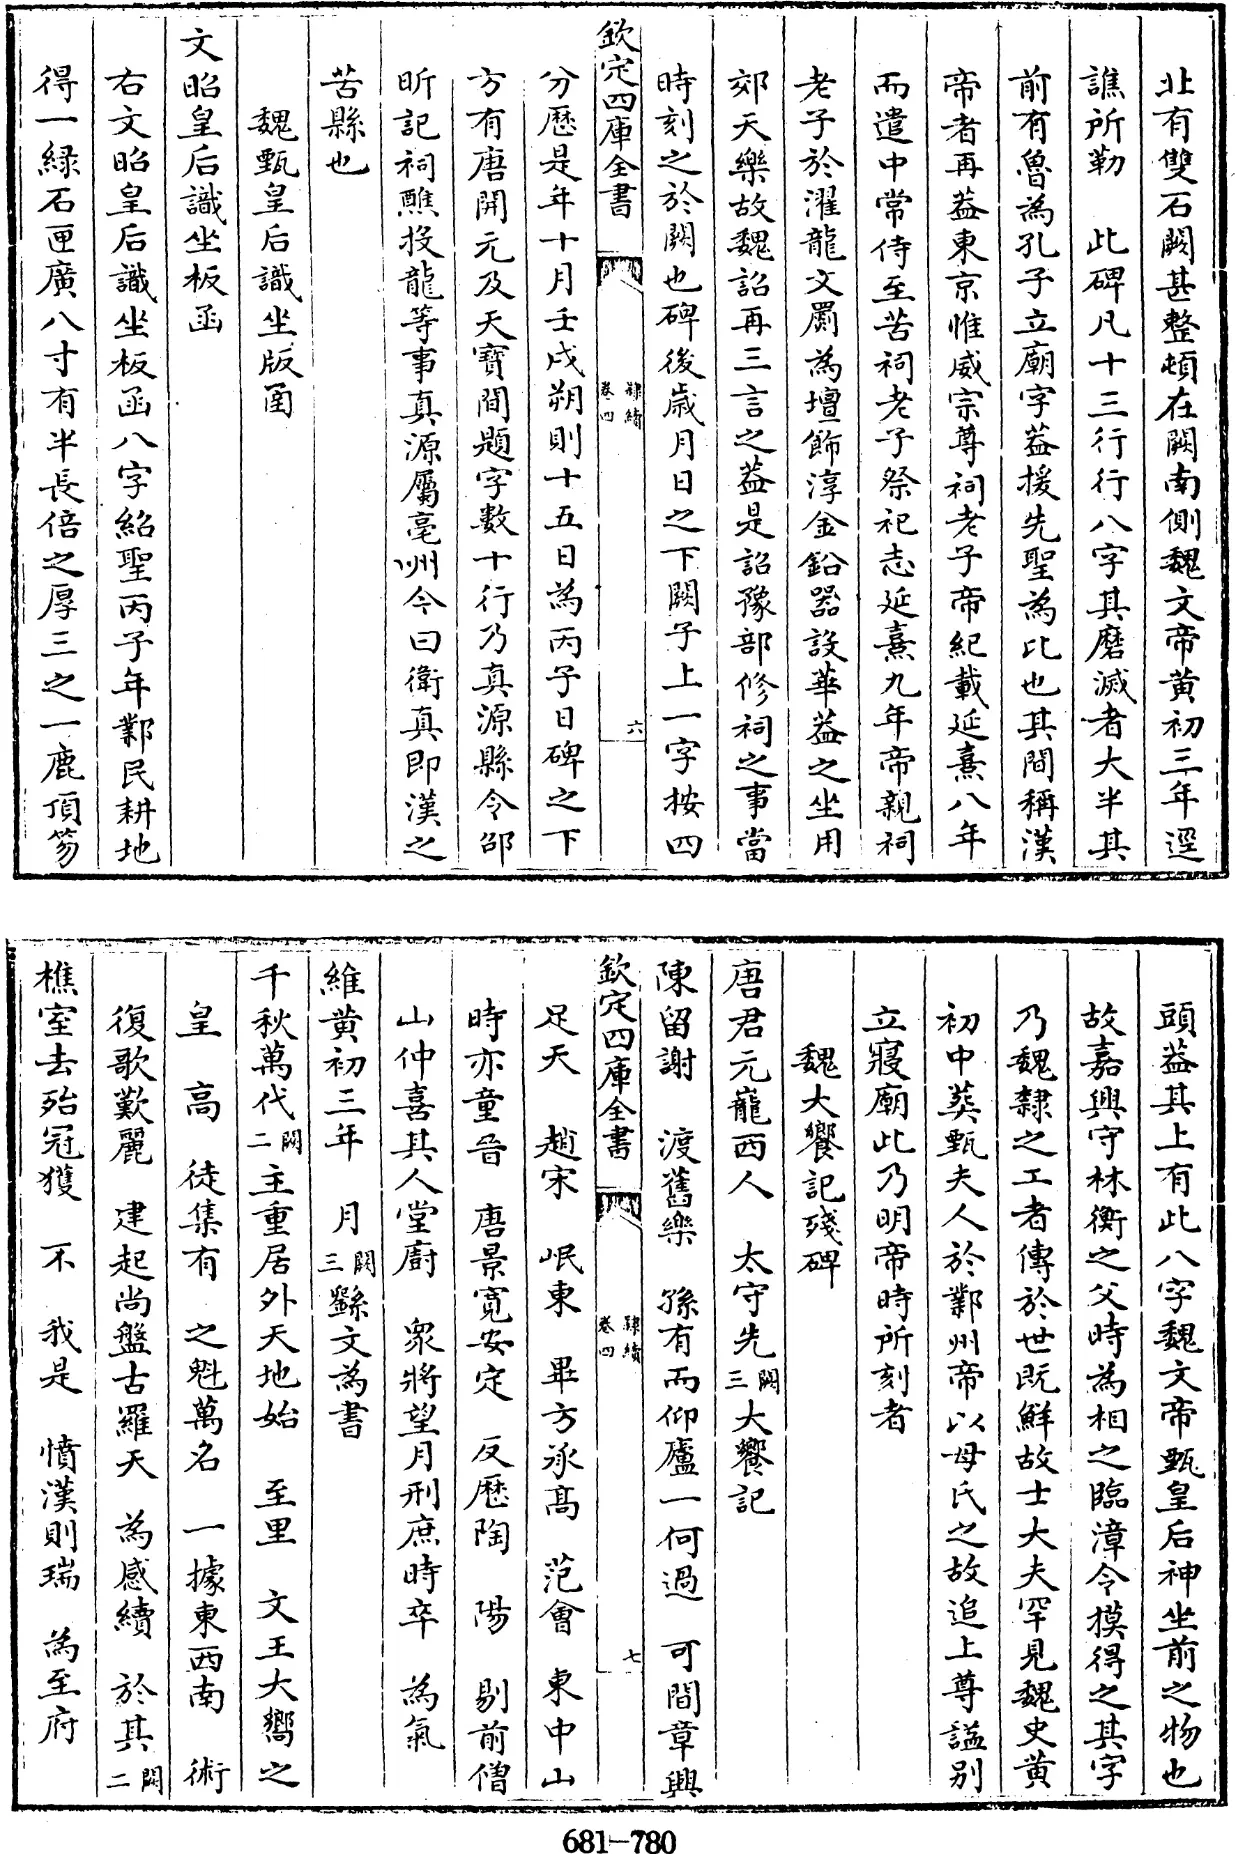 北有雙石闕甚整頓在闕南側魏文帝黄初三年逕
譙所勒　此碑凡十三行行八字其磨滅者大半其
前有魯為孔子立廟字葢援先聖為比也其間稱漢
帝者再葢東京惟威宗尊祠老子帝紀載延熹八年
而遣中常侍至苦祠老子祭祀志延熹九年帝親祠
老子於濯龍文罽為壇飾淳金鉛器設華葢之坐用
郊天樂故魏詔再三言之葢是詔豫部修祠之事當
時刻之於闕也碑後歲月日之下闕子上一字按四
欽定四庫全書
隸續
卷四
六
分歴是年十月壬戌朔則十五日為丙子日碑之下
方有唐開元及天寶間題字數十行乃真源縣令邵
昕記祠醮投龍等事真源屬亳州今曰衛真即漢之
苦縣也
魏甄皇后識坐版函
文昭皇后識坐板函
右文昭皇后識坐板函八字紹聖丙子年鄴民耕地
得一緑石匣廣八寸有半長倍之厚三之一鹿頂笏
頭葢其上有此八字魏文帝甄皇后神坐前之物也
故嘉興守林衡之父時為相之臨漳令摸得之其字
乃魏隸之工者傳於世既鮮故士大夫罕見魏史黄
初中葬甄夫人於鄴州帝以母氏之故追上尊諡别
立寢廟此乃明帝時所刻者
魏大饗記殘碑
唐君元龐西人　太守先闕三大饗記
陳留謝　渡舊樂　孫有而仰廬一何過　可間章興
欽定四庫全書
隸續
卷四
七
足天　趙宋　岷東　畢方承高　范會　東中山
時亦童晉　唐景寛安定　反歴陶　陽　剔前僧
山仲喜其人堂廚　衆將望月刑庶時卒　為氣
維黄初三年　月闕三繇文為書
千秋萬代闕二主重居外天地始　至里　文王大嚮之
皇　高　徒集有　之魁萬名　一據東西南　術
復歌歎麗　建起尚盤古羅天　為感續　於其闕二
樵室去殆冠獲　不　我是　憤漢則瑞　為至府
681-780